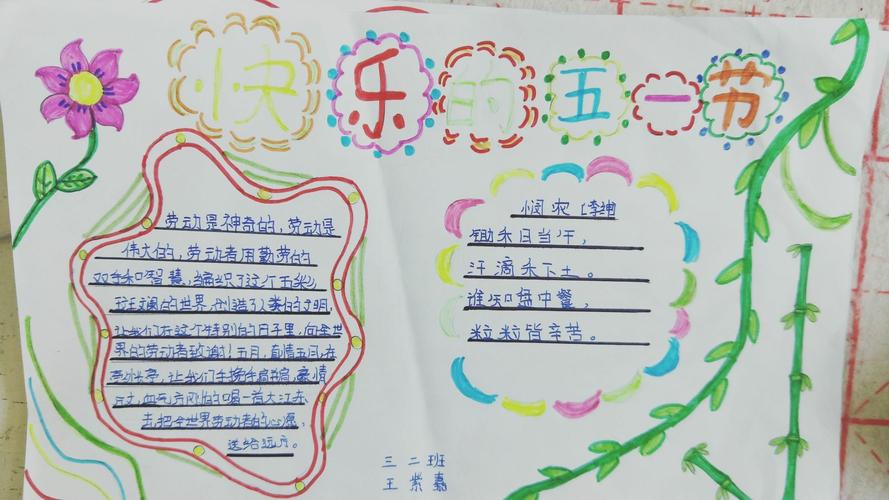 快乐的五一节
劳动是神奇的，劳动是
伟大的，劳动者用勤劳的
双手和智慧，编织了这个五彩
斑斓的世界，创造了人类的文明，
让我们在这个特别的日子里，向全世
界的劳动者致谢！五月，真情五月，在
让我们手挽手肩并肩，豪情
血气方刚的唱一首大江东
去，把全世界劳动者的心愿，
送给远方。
悯农 (李绅
锄禾日当午，
汗滴禾下土。
谁知盘中餐，
粒粒皆辛苦。
三 二 班
王紫嘉